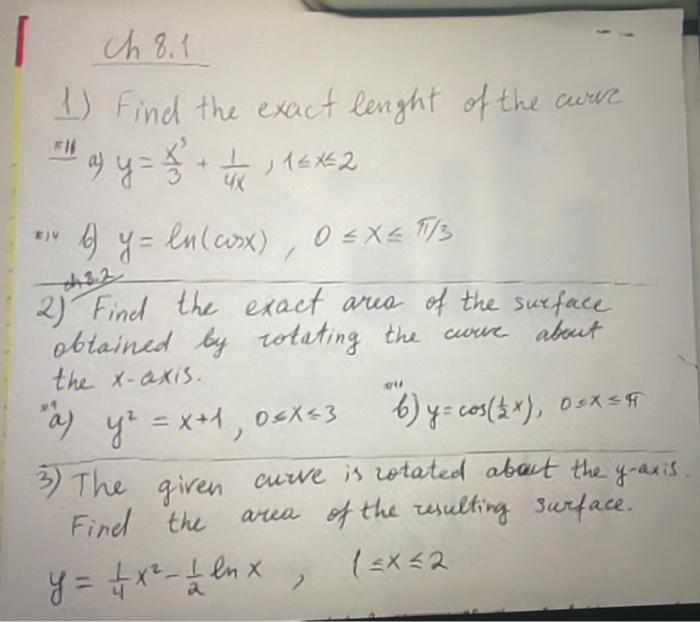 ch 8.1
1) Find the exact lenght of the curve
#11 a) y = x³/3 + 1/4x , 1≤x≤2
b) y = ln(cosx) , 0 ≤ x ≤ π/3
ch 8.2
2) Find the exact area of the surface
obtained by rotating the curve about
the x-axis.
a) y² = x+1, 0≤x≤3 b) y = cos(½x), 0≤x≤π
3) The given curve is rotated about the y-axis.
Find the area of the resulting surface.
y = ¼x² - ½ ln x , 1≤x≤2